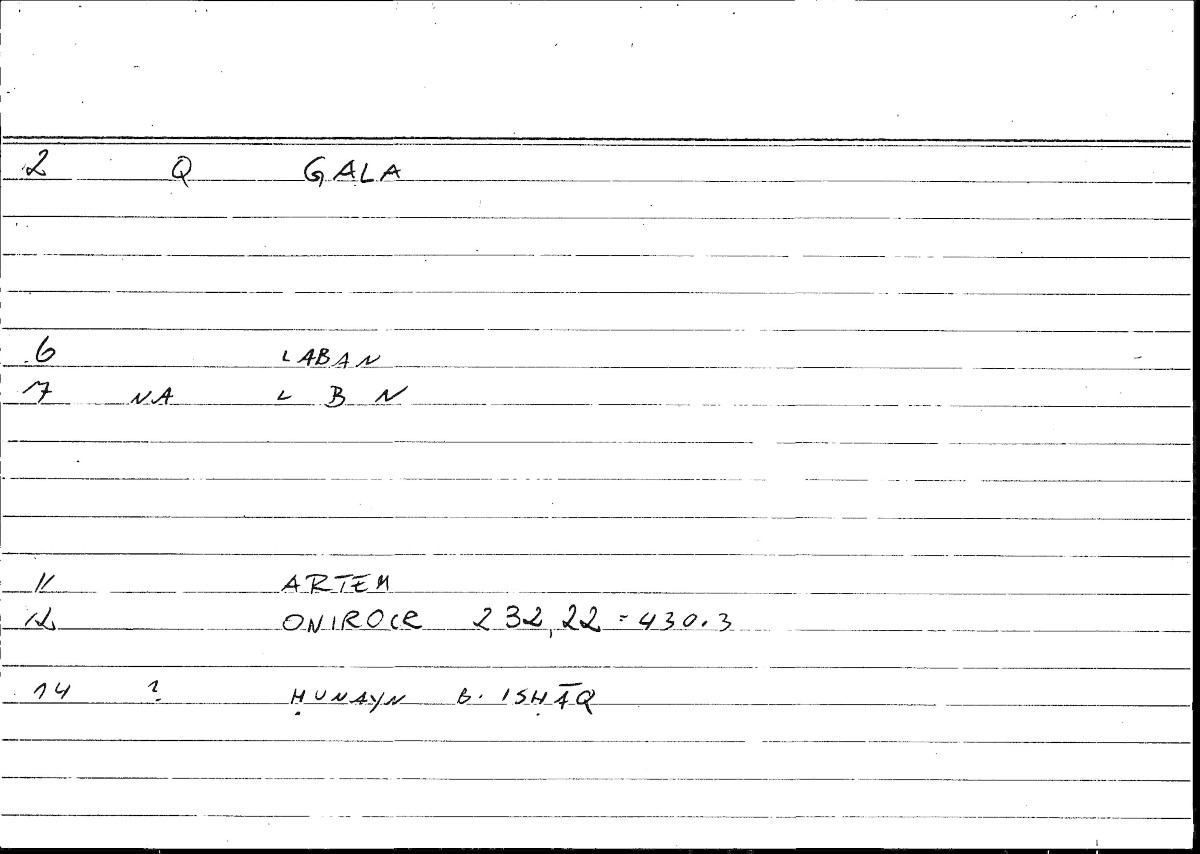 2 Q GALA
6 LABAN
7 NA L B N
11 ARTEM
12 ONIROCR 232,22 = 430.3
14 ? ḤUNAYN B. ISḤĀQ